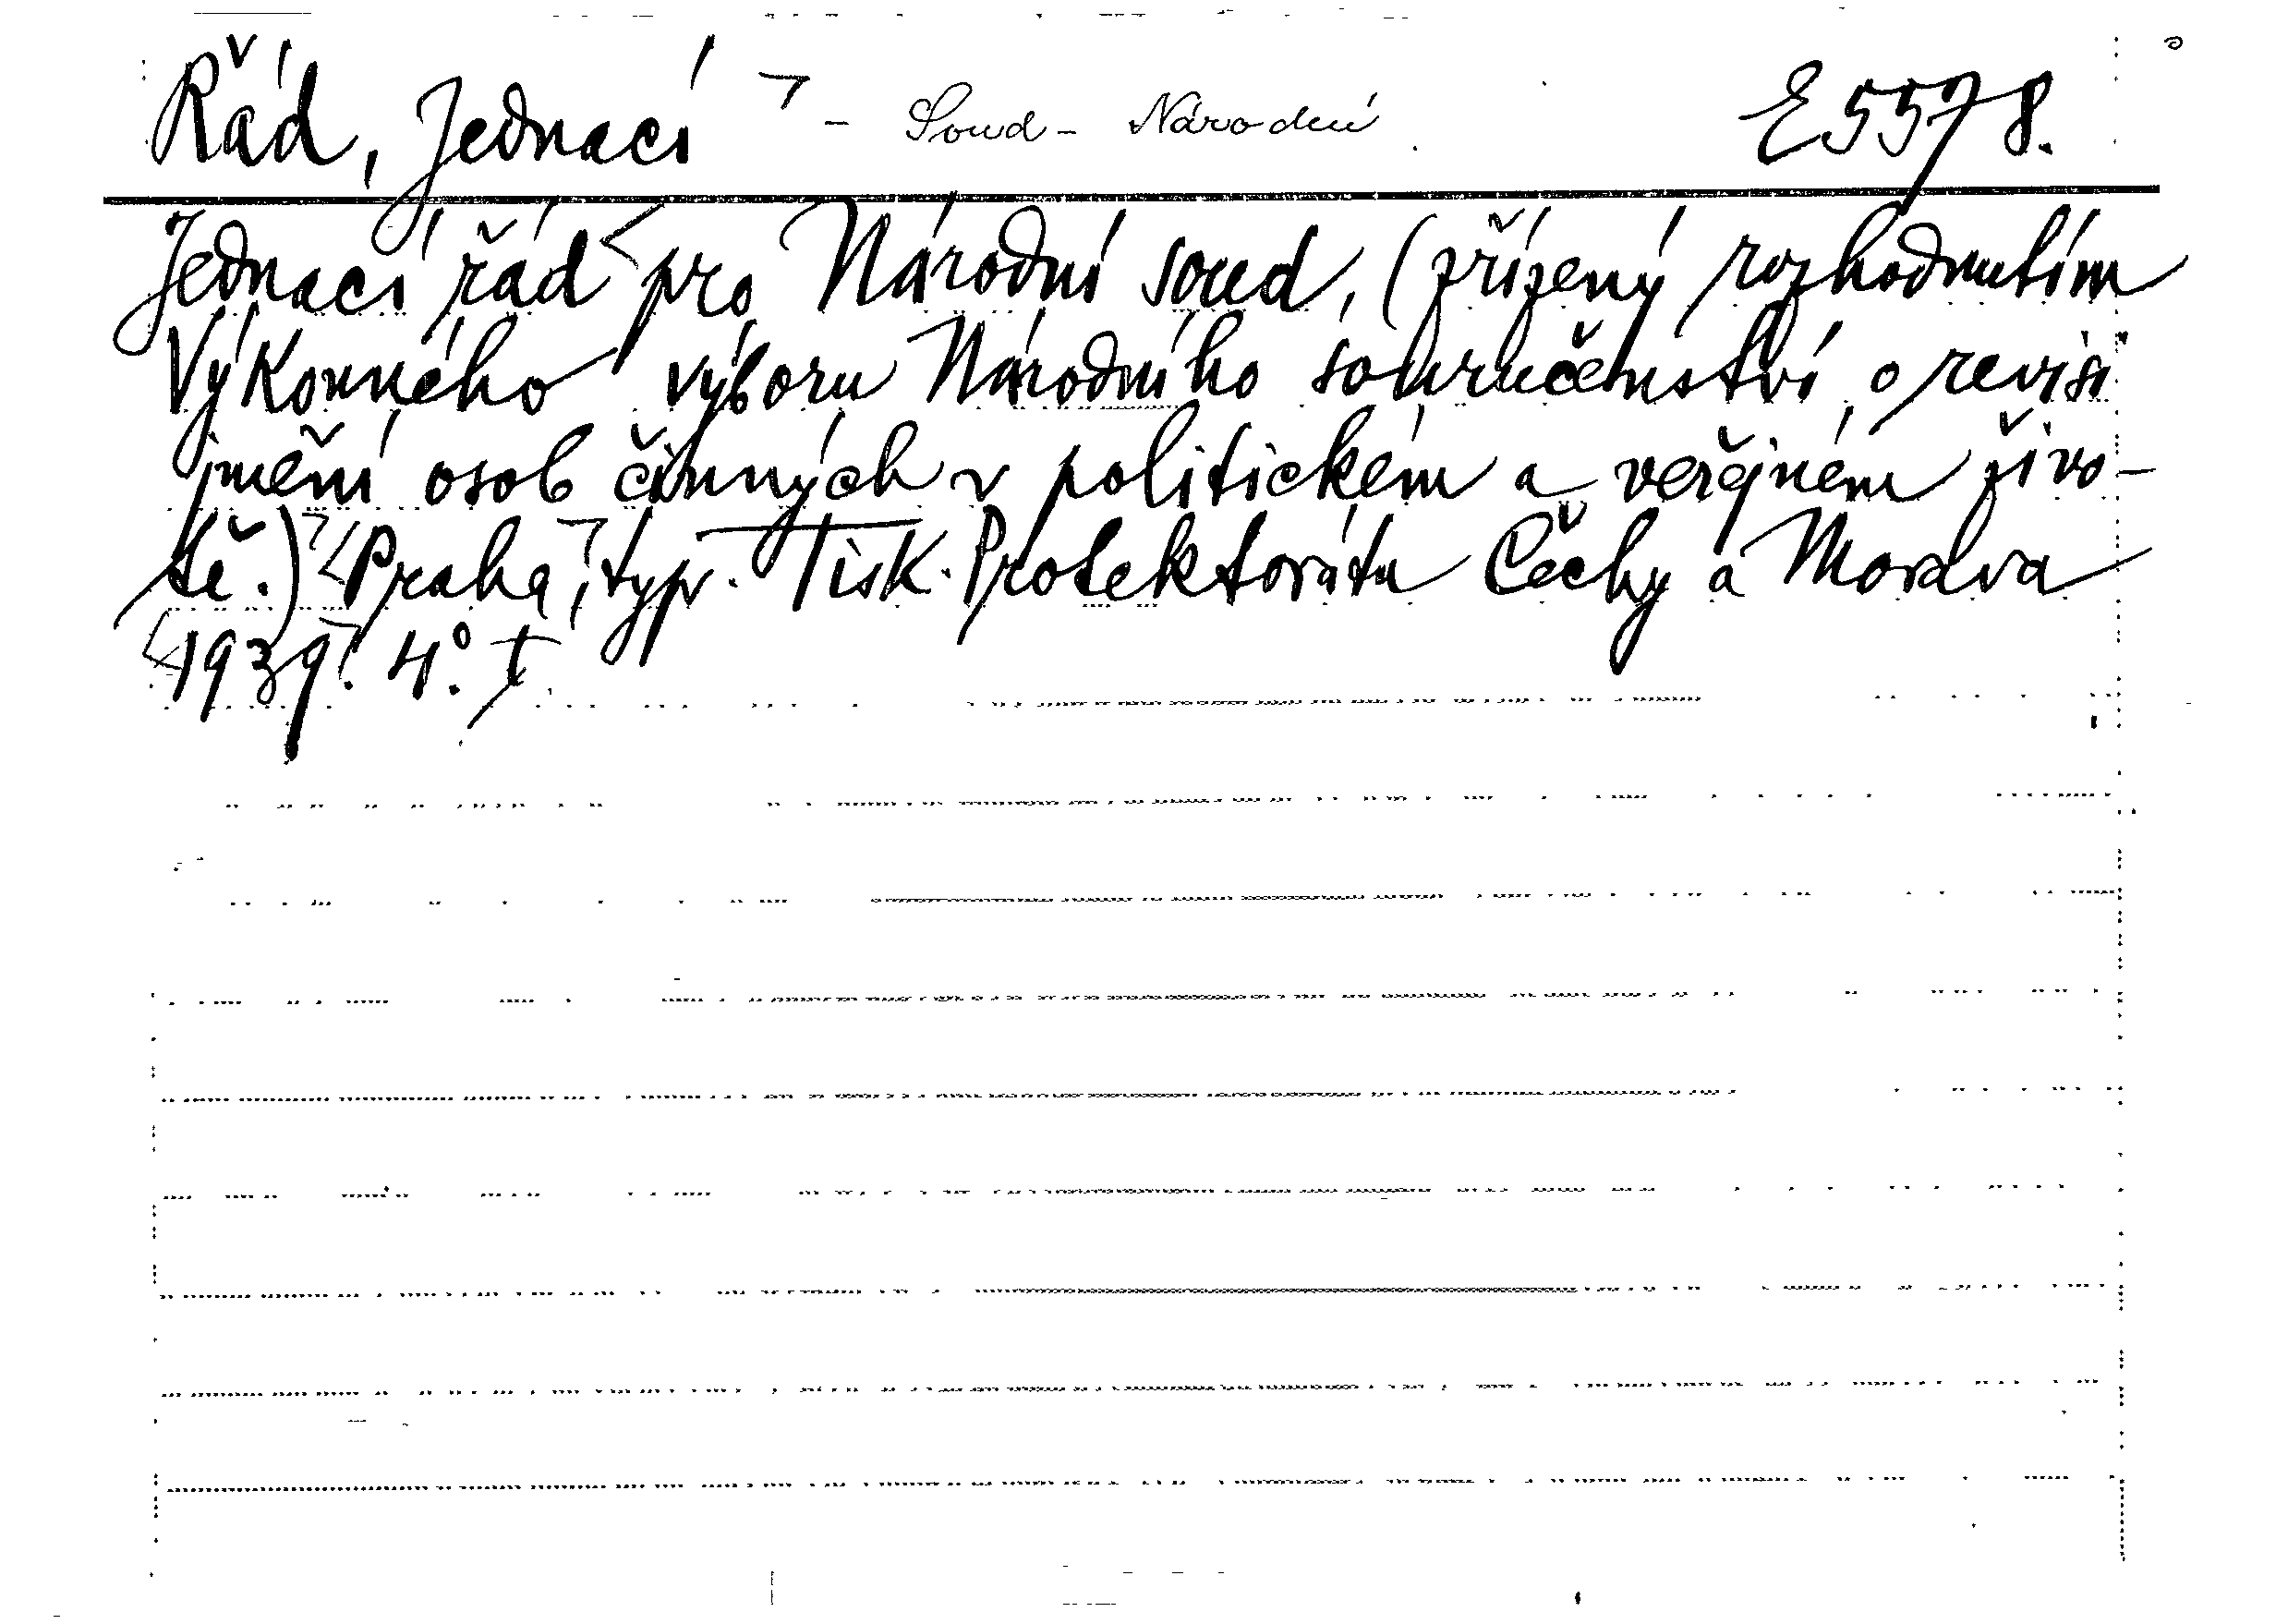 Řád, Jednací - Soud - Národní E 5578.
Jednací řád pro Národní soud, (zřízený rozhodnutím
Výkonného výboru Národního souručenství o revisi
jmění osob činných v politickém a veřejném živo-
tě.) Praha, typ. Tisk. Protektorátu Čechy a Morava
1939. 4°.